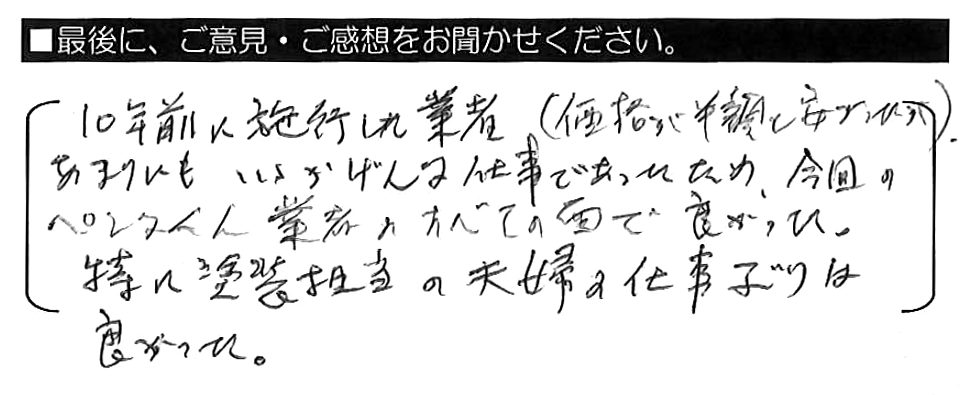 ■最後に、ご意見・ご感想をお聞かせください。
10年前に施行した業者(価格が 安かったが).
あまりにも いいかげんな仕事であったため、今回の
ペンタくん 業者はすべての面で 良かった。
特に塗装担当の夫婦の仕事ぶりは
良かった。